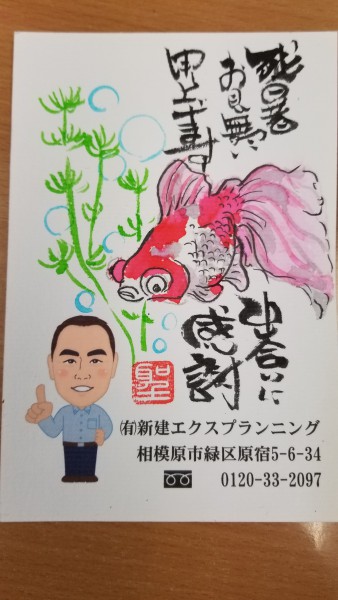 残暑
お見舞い
申し上げます
出会いに
感謝
聖
㈲新建エクスプランニング
相模原市緑区原宿5-6-34
0120-33-2097